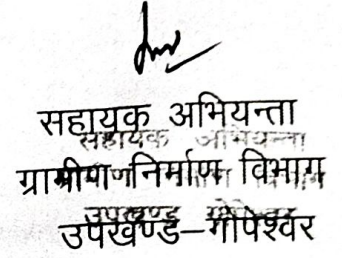 सहायक अभियन्ता
ग्रामीण निर्माण विभाग
उपखण्ड–गोपेश्वर